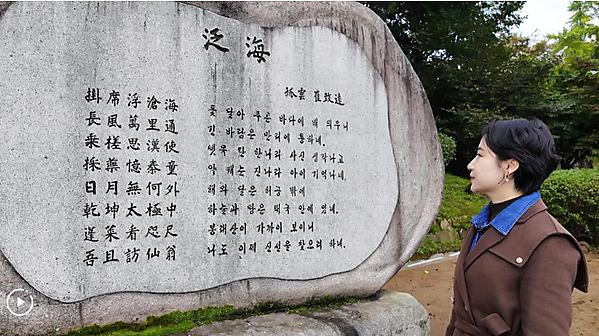 泛海
孤雲 崔致遠
掛席浮滄海
長風萬里通
乘槎思漢使
採藥憶秦童
日月無何外
乾坤太極中
蓬萊看咫尺
吾且訪仙翁
돛 달아 푸른 바다에 배 띄우니
긴 바람은 만리에 통하네.
뗏목 탄 한나라 사신 생각나고
약 캐는 진나라 아이 기억나네.
해와 달은 허공 밖에
하늘과 땅은 태극 안에 있네.
봉래산이 가까이 보이니
나도 이제 신선을 찾으려 하네.